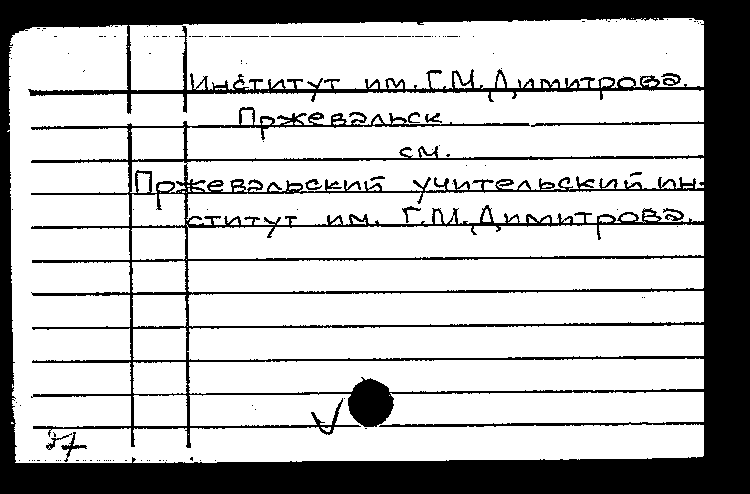 Институт им. Г.М. Димитрова.
Пржевальск.
см.
Пржевальский учительский ин-
ститут им. Г.М. Димитрова.
27